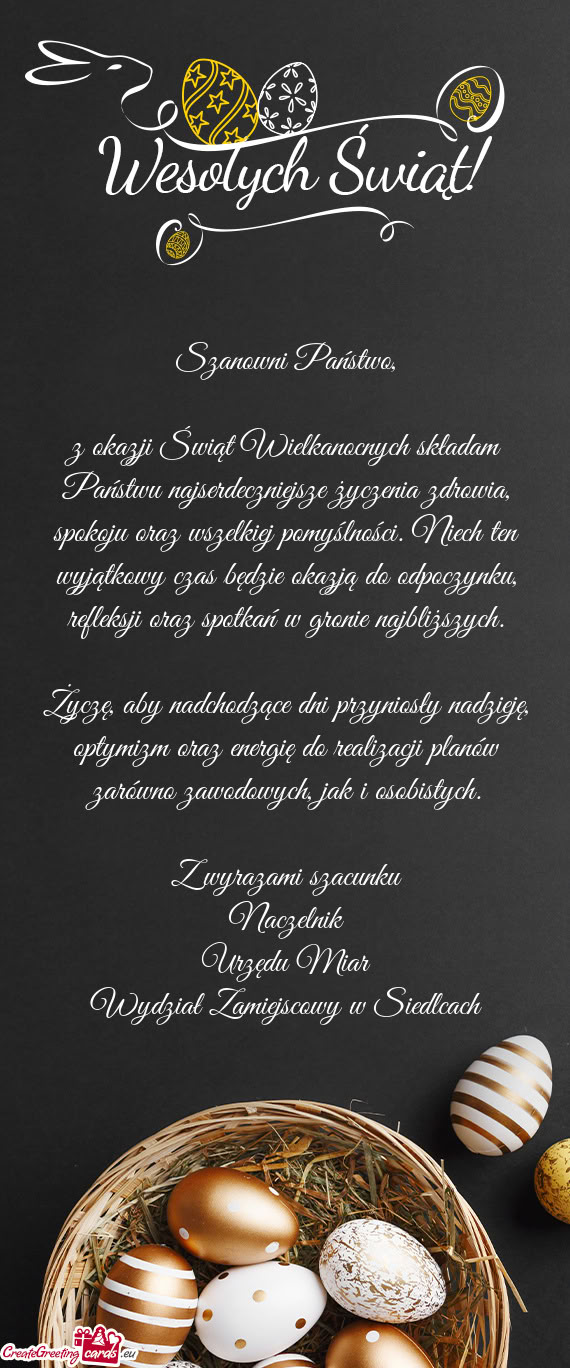 Wesołych Świąt!
Szanowni Państwo,
z okazji Świąt Wielkanocnych składam
Państwu najserdeczniejsze życzenia zdrowia,
spokoju oraz wszelkiej pomyślności. Niech ten
wyjątkowy czas będzie okazją do odpoczynku,
refleksji oraz spotkań w gronie najbliższych.
Życzę, aby nadchodzące dni przyniosły nadzieję,
optymizm oraz energię do realizacji planów
zarówno zawodowych, jak i osobistych.
Z wyrazami szacunku
Naczelnik
Urzędu Miar
Wydział Zamiejscowy w Siedlcach
CreateGreeting cards .eu